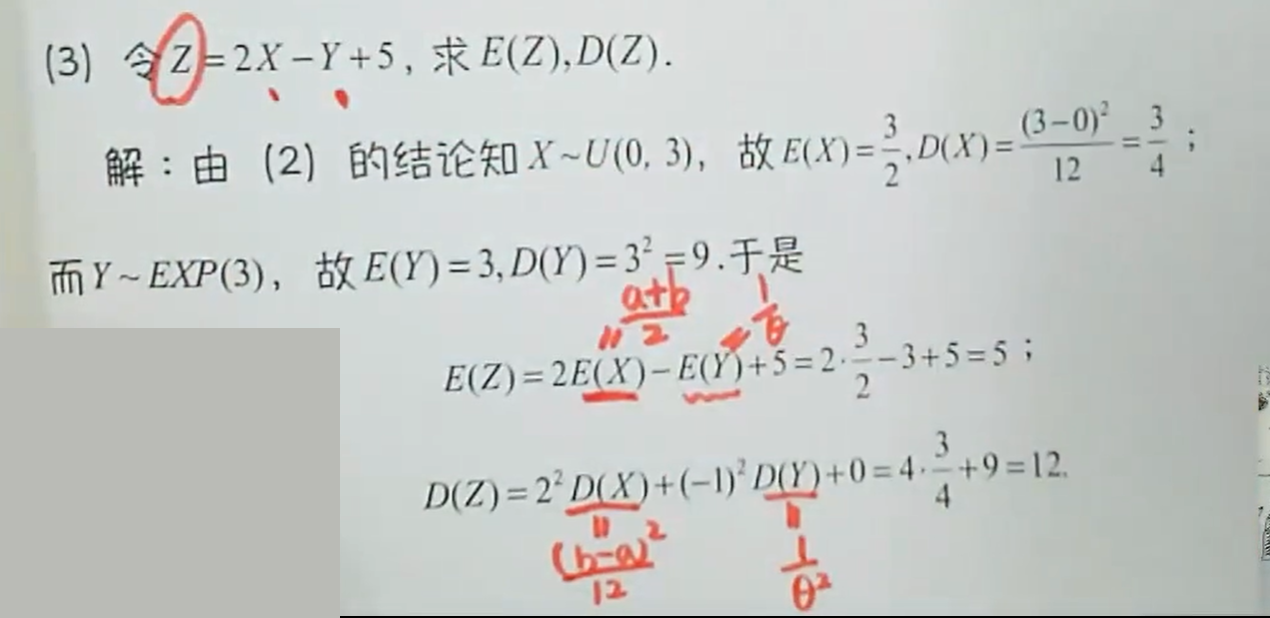 (3) 令Z=2X-Y+5，求E(Z),D(Z).
解：由（2）的结论知X~U(0, 3)，故E(X)=3/2,D(X)=(3-0)²/12=3/4；
而Y~EXP(3)，故E(Y)=3,D(Y)=3²=9.于是
a+b/2 1/θ
E(Z)=2E(X)-E(Y)+5=2·3/2-3+5=5；
D(Z)=2²D(X)+(-1)²D(Y)+0=4·3/4+9=12.
(b-a)²/12 1/θ²